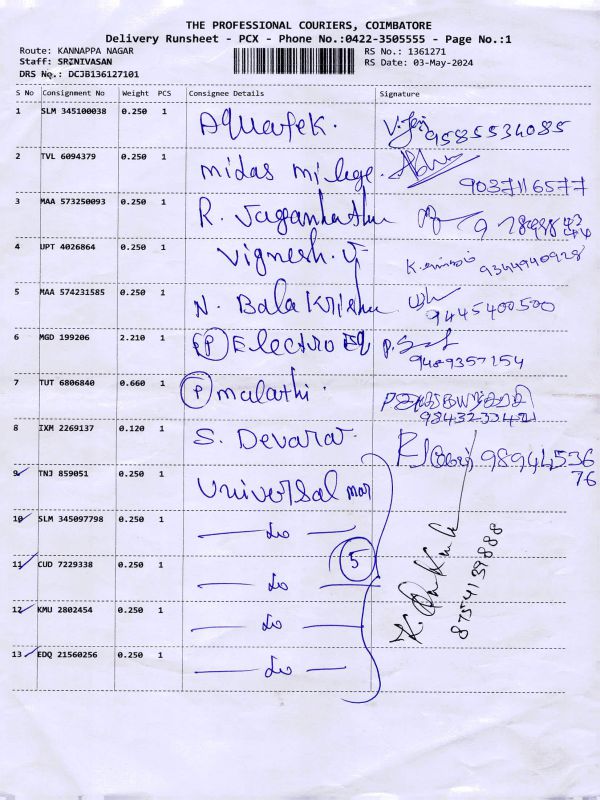 THE PROFESSIONAL COURIERS, COIMBATORE
Delivery Runsheet - PCX - Phone No.:0422-3505555 - Page No.:1
Route: KANNAPPA NAGAR RS No.: 1361271
Staff: SRINIVASAN RS Date: 03-May-2024
DRS No.: DCJB136127101
S No Consignment No Weight PCS Consignee Details Signature
1 SLM 345100038 0.250 1 Aquatek. 9585534085
2 TVL 6094379 0.250 1 midas 9037116577
3 MAA 573250093 0.250 1 R.
4 UPT 4026864 0.250 1 Vignesh. 9344940928
5 MAA 574231585 0.250 1 N. Bala Krishn 9445400500
6 MGD 199206 2.210 1 PP Electro Eq 9489357154
7 TUT 6806840 0.660 1 P malathi.
8 IXM 2269137 0.120 1 S. Devaraj. 9894453676
9 TNJ 859051 0.250 1 Universal mar
10 SLM 345097798 0.250 1 — do —
11 CUD 7229338 0.250 1 — do — 5
12 KMU 2802454 0.250 1 — do —
13 EDQ 21560256 0.250 1 — do —
8754139888